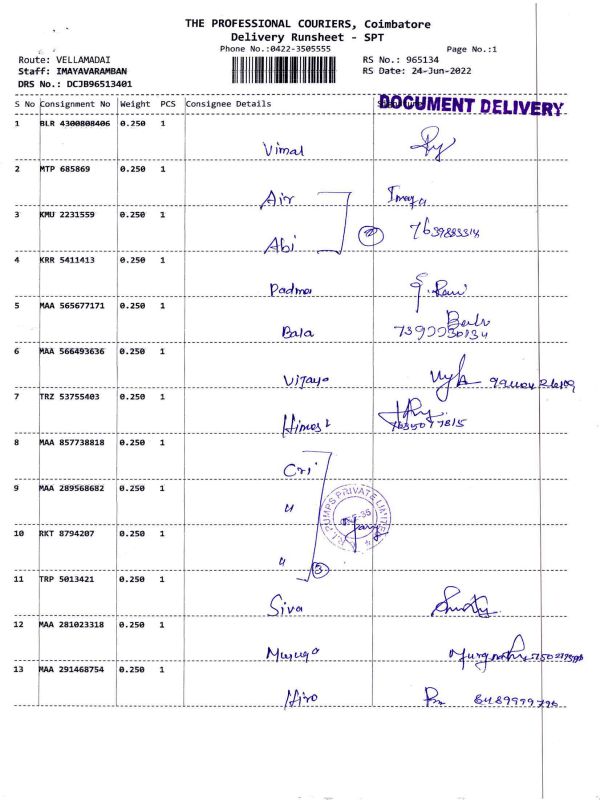 THE PROFESSIONAL COURIERS, Coimbatore
Delivery Runsheet - SPT
Phone No.:0422-3505555
Page No.:1
Route: VELLAMADAI
RS No.: 965134
Staff: IMAYAVARAMBAN
RS Date: 24-Jun-2022
DRS No.: DCJB96513401
S No Consignment No Weight PCS Consignee Details
DOCUMENT DELIVERY
1 BLR 4300808406 0.250 1
Vimal
2 MTP 685869 0.250 1
Air
3 KMU 2231559 0.250 1
Abi 2
4 KRR 5411413 0.250 1
Padma
5 MAA 565677171 0.250 1
Bala
6 MAA 566493636 0.250 1
Vijaya
7 TRZ 53755403 0.250 1
8 MAA 857738818 0.250 1
Cri
9 MAA 289568682 0.250 1
"
PUMPS PRIVATE LIMITED
10 RKT 8794207 0.250 1
" 3
11 TRP 5013421 0.250 1
Siva
12 MAA 281023318 0.250 1
Muruga
13 MAA 291468754 0.250 1
Hiro